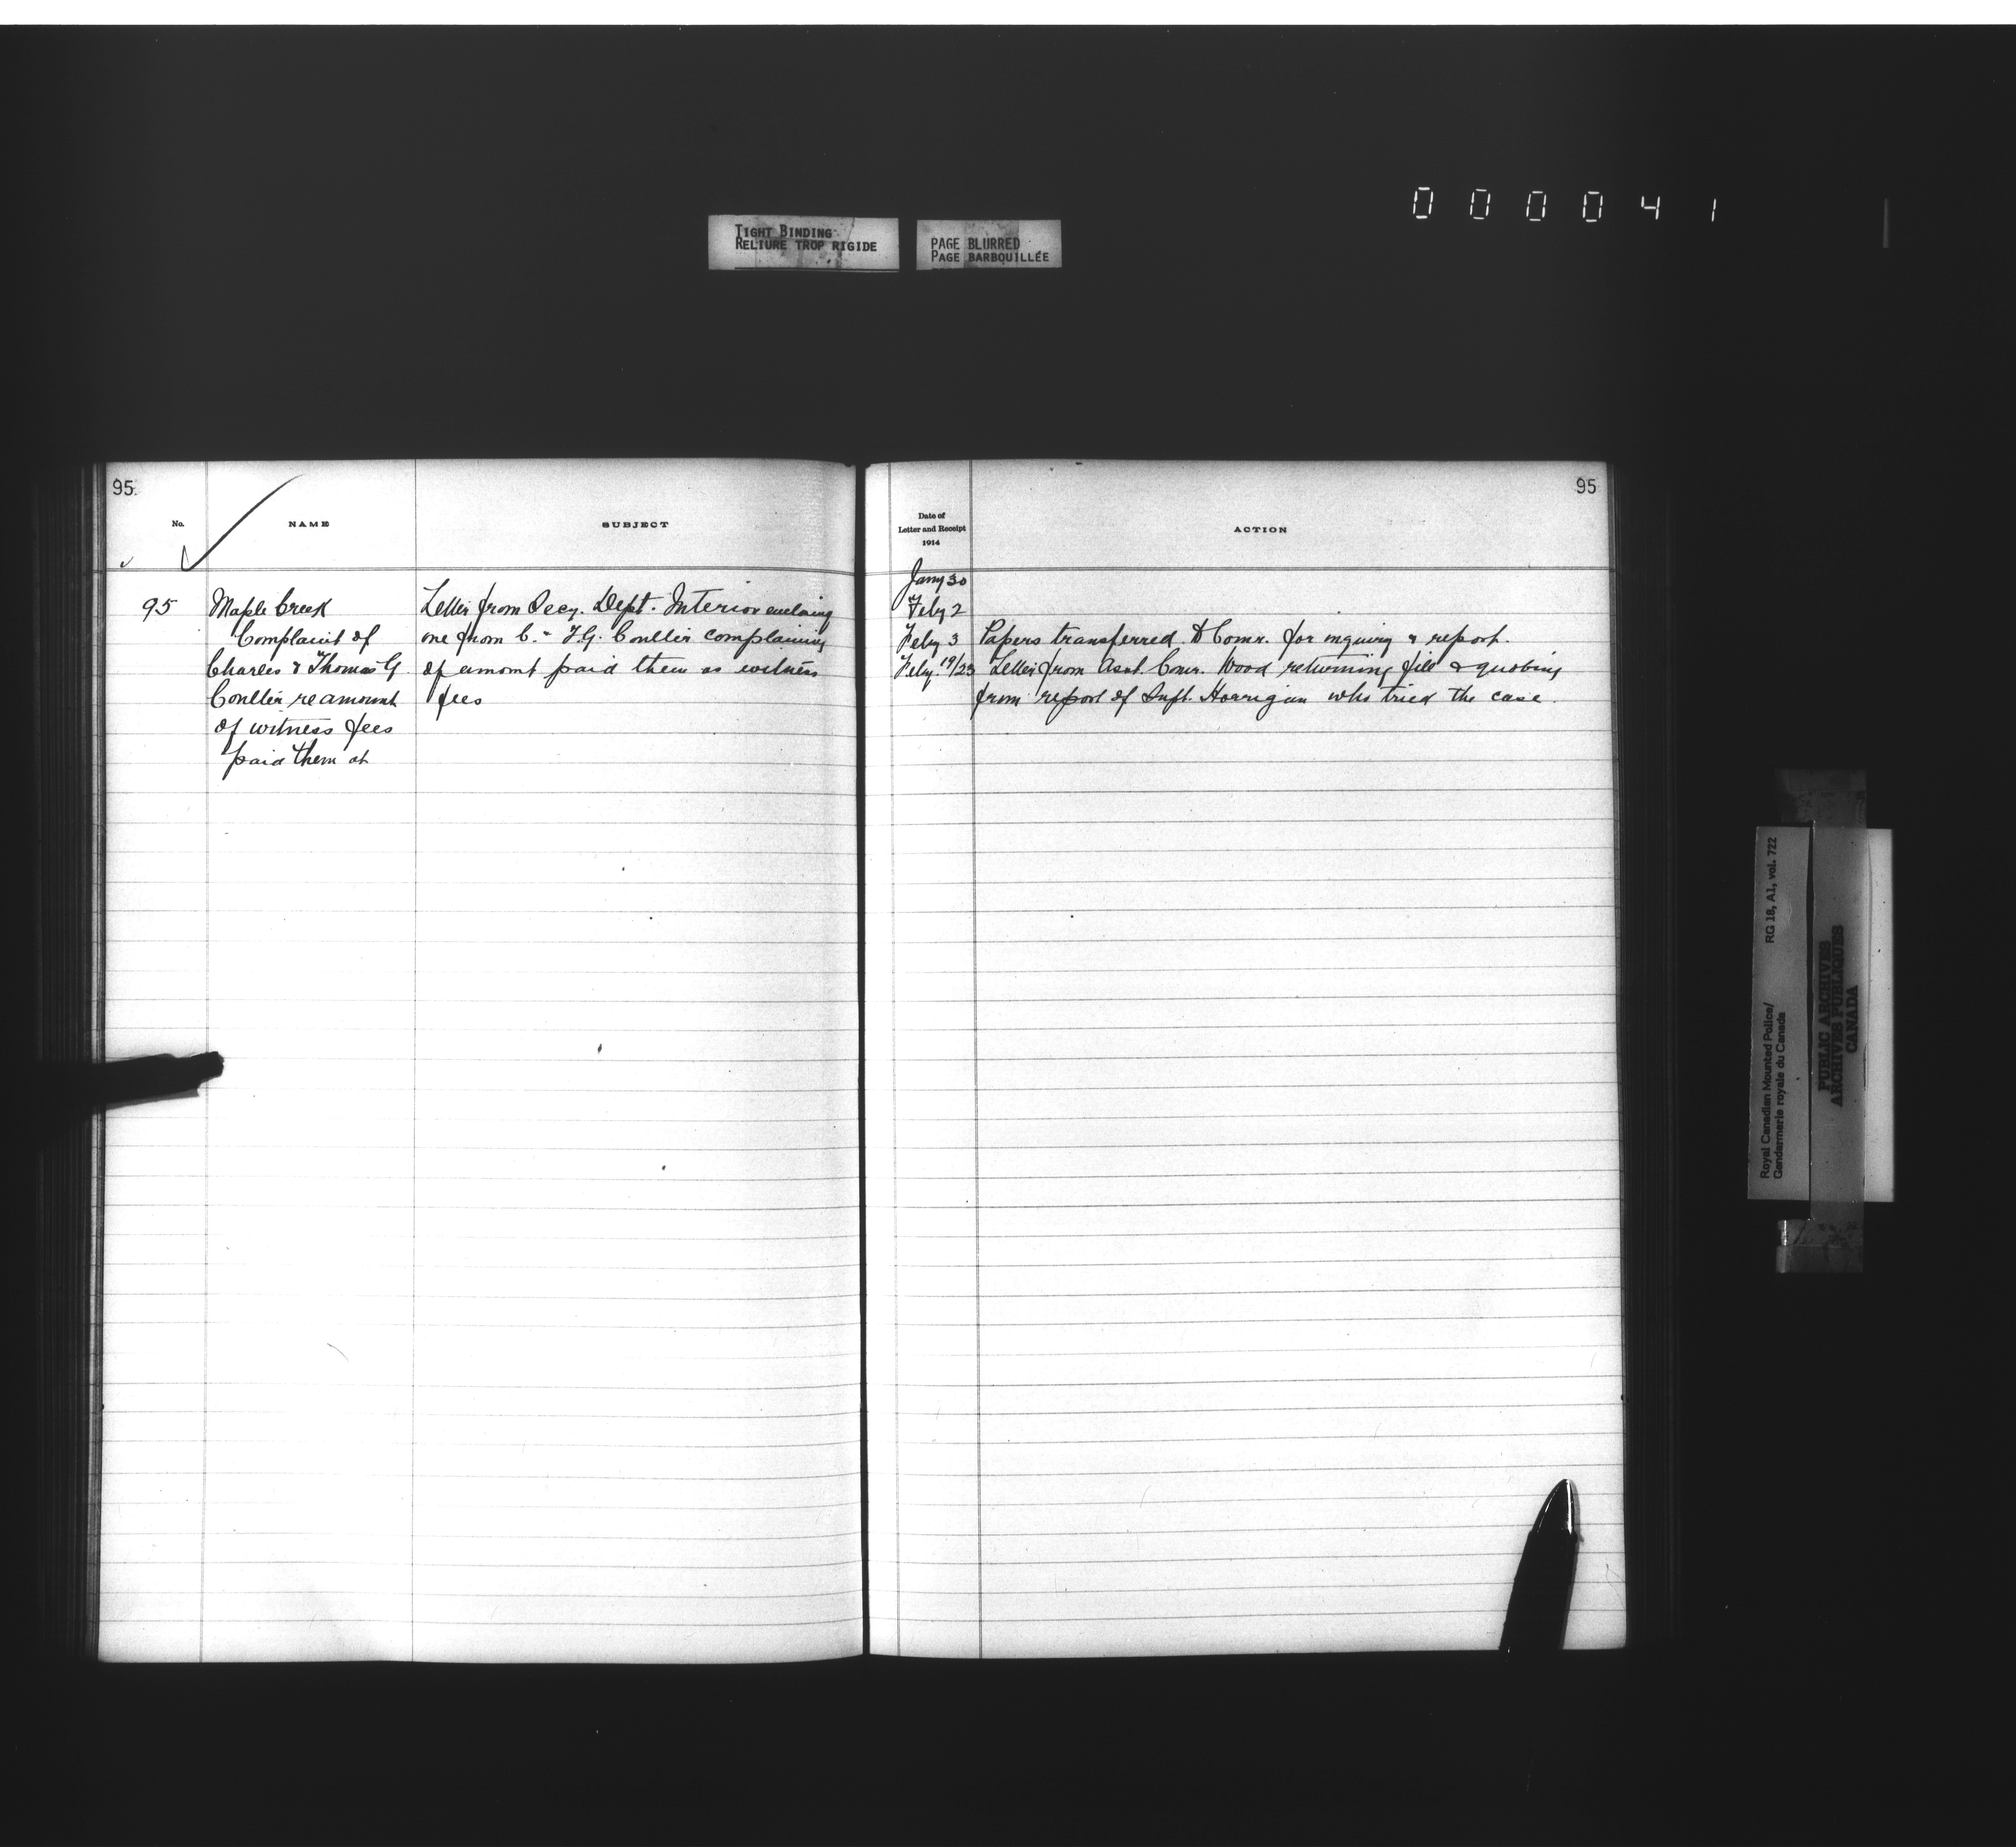 000041
TIGHT BINDING
RELIURE TROP RIGIDE
PAGE BLURRED
PAGE BARBOUILLÉE
95
No.
NAME
SUBJECT
95
Maple Creek
Complaint of
Charles & Thomas G.
Coulter re amount
of witness fees
paid them at
Letter from Secy. Dept. Interior enclosing
one from C. & T.G. Coulter complaining
of amount paid them as witness
fees
95
Date of
Letter and Receipt
1914
ACTION
Jany 30
Feby 2
Feby 3 Papers transferred to Comr. for inquiry & report.
Feby. 19/23 Letter from Asst. Comr. Wood returning file & quoting
from report of Supt. Horrigan who tried the case.
Royal Canadian Mounted Police/
Gendarmerie royale du Canada
RG 18, A1, vol. 722
PUBLIC ARCHIVES
ARCHIVES PUBLIQUES
CANADA